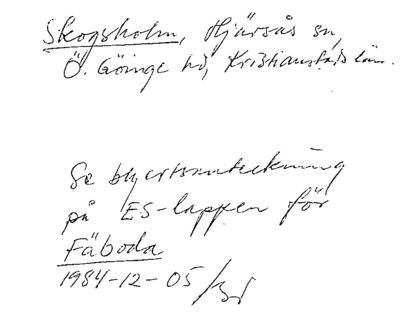 Skogsholm, Hjärsås sn,
Ö. Göinge hd, Kristianstads län.
Se blyertsanteckning
på ES-lappen för
Fäboda
1984-12-05